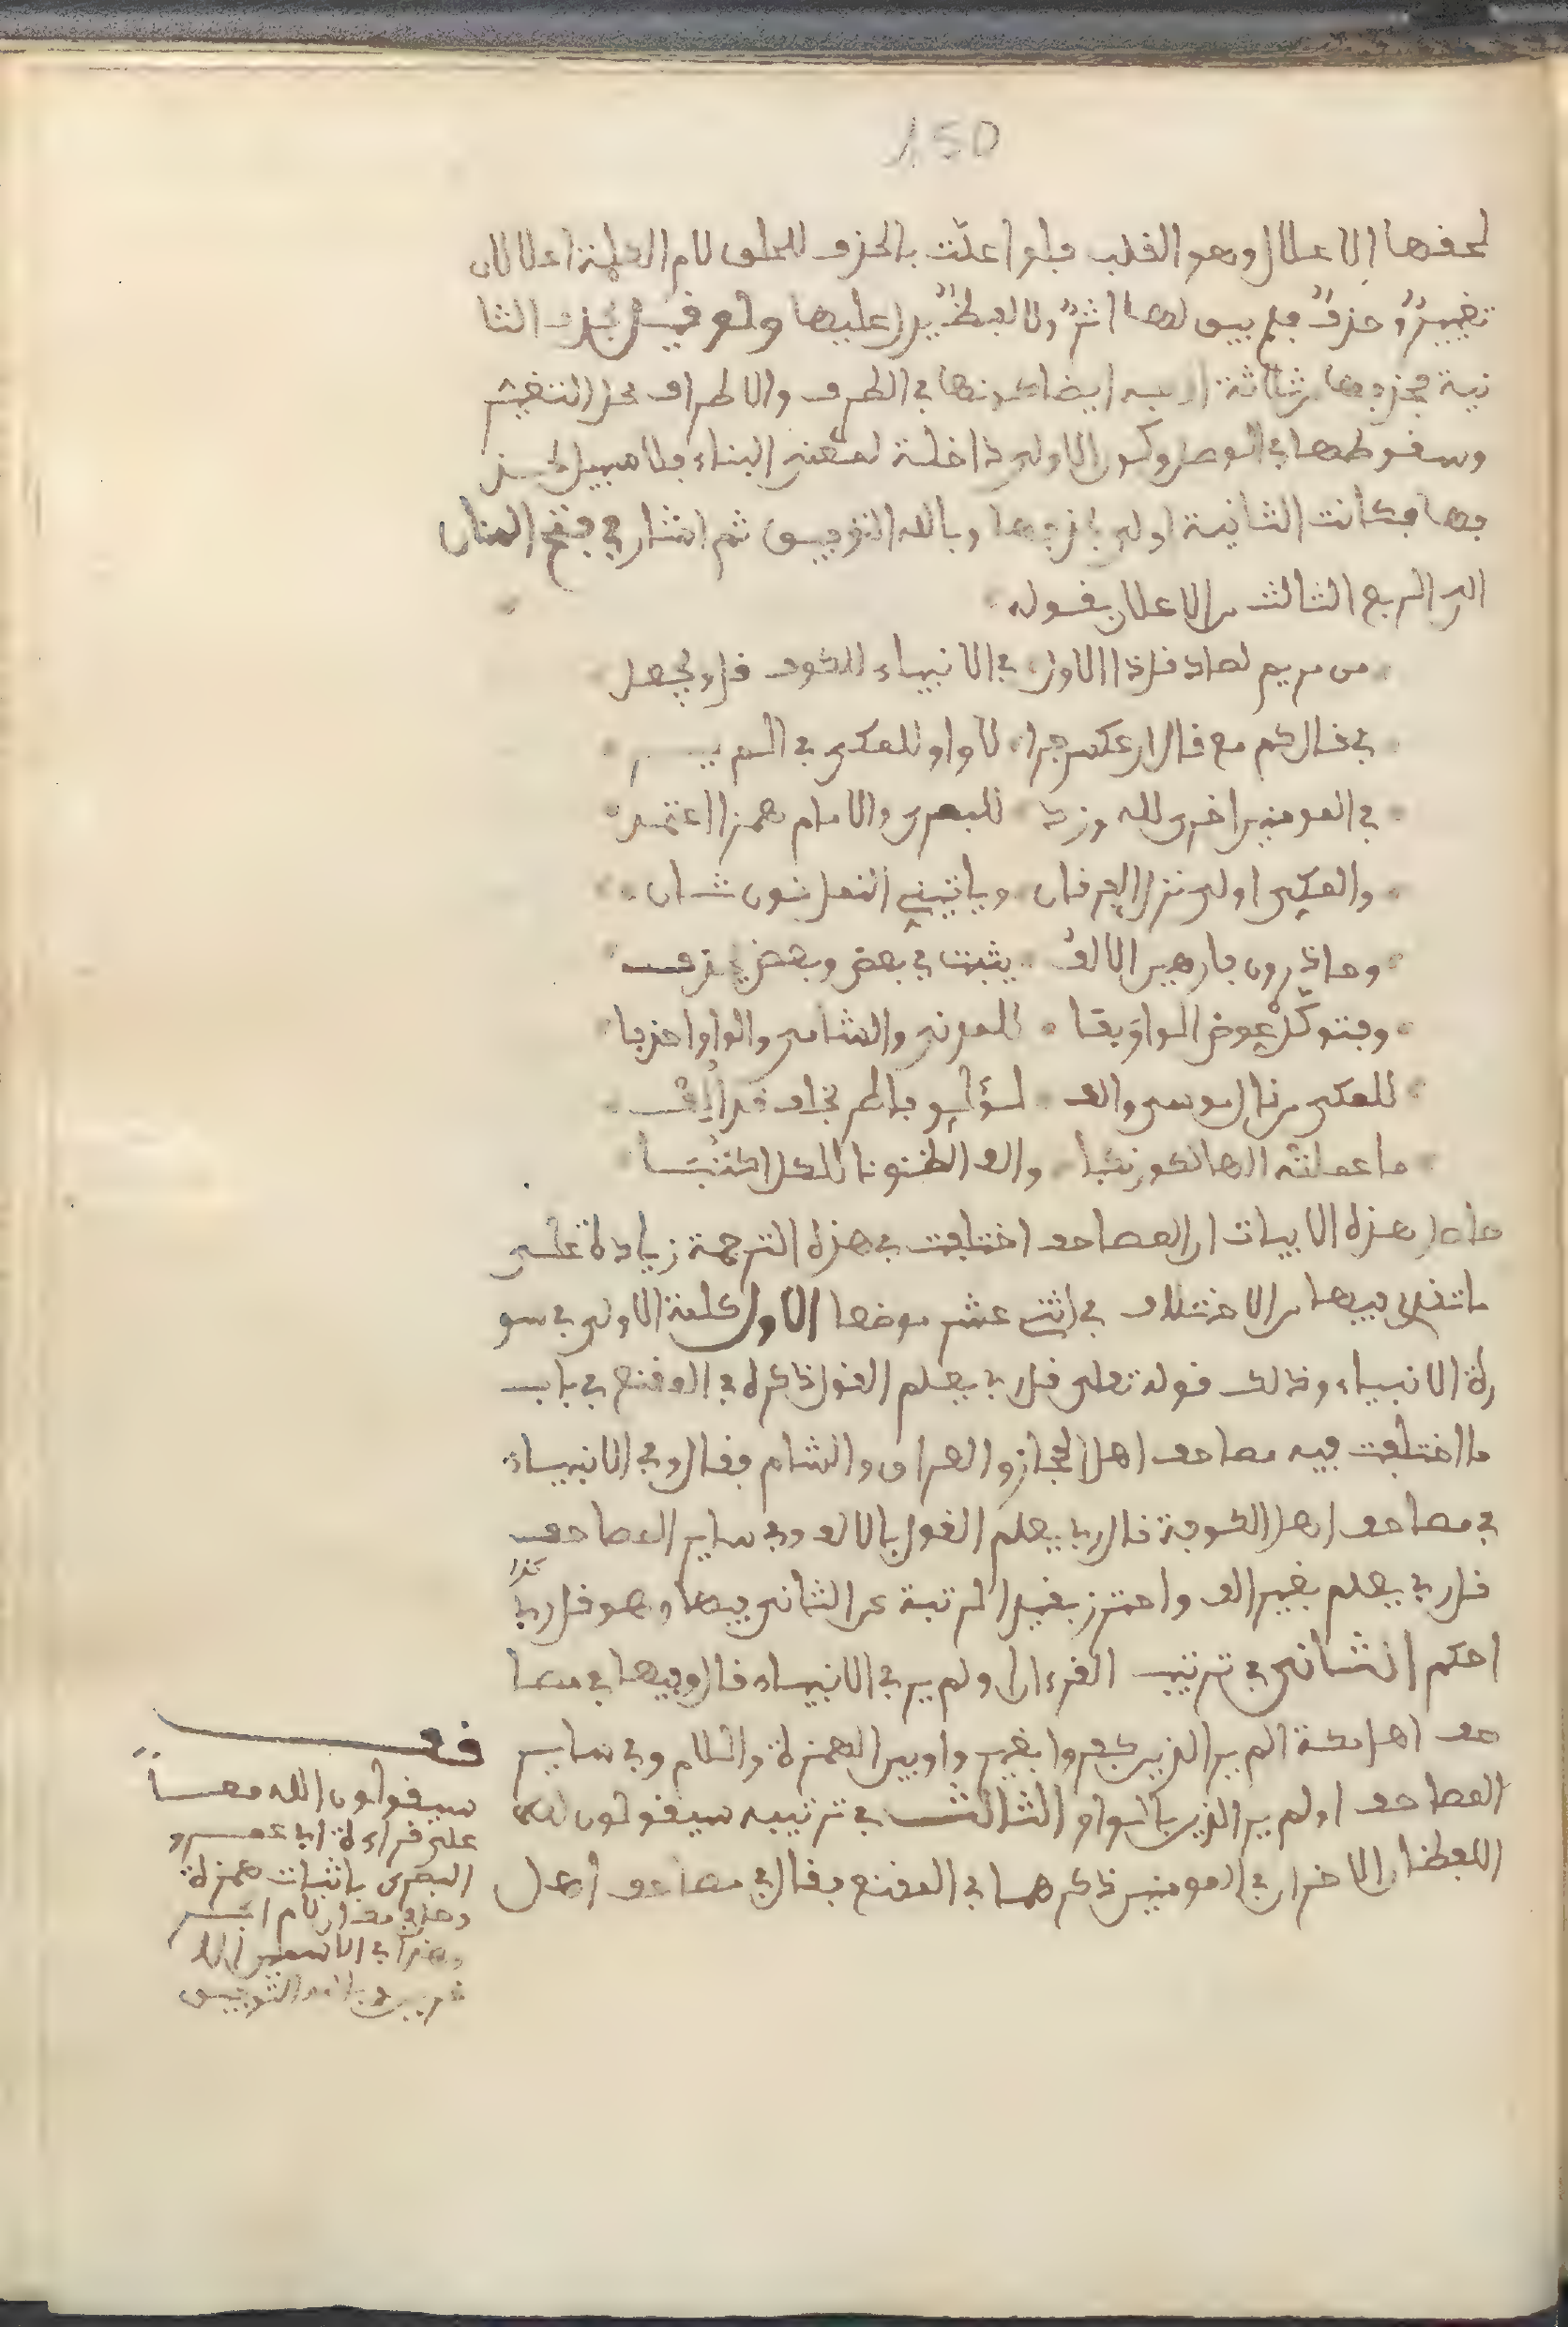 150
لحقها الاعلال وهو القلب فلو اعلّت بالحذف للحق لام الكلمة اعلالان
تغييرٌ وحذفٌ فلم يبق لها اثرٌ ولا لفظٌ يدل عليها ولو قيل بحذف الثا
نية فحذفها ثلاثة اوجه ايضا كونها في الطرف والاطراف محل التغيير
وسقوطها في الوصل وكون الاولى داخلة لمعنى البناء فلا سبيل لحذ
فها فكانت الثانية اولى بحذفها وبالله التوفيق ثم اشار في فتح المنان
الى الربع الثالث من الاعلان بقوله
من مريم لصاد قل ذا الاول في الانبياء للكوف قال يجعل
في قال كم مع قال ان عكس جرا لا واو للمكي في الم ير
في المومنين اخرى لله وزد للبصري والامام همزا اعتمد
والمكي اولى نزل الفرقان وياتيني النمل نون ثان
وحاذرون فارهين الالف يثبت في بعض وبعض يحذف
وفتوكل عوض الواو بفا للمدني والشامي والواو احذفا
للمكي من قال موسى والف لؤلؤ فاطر بخلف قد ألف
ما عملته الها لكوف نكبا والف الظنونا للكل اكتبا
حاصل هذه الابيات ان المصاحف اختلفت في هذه الترجمة زيادة على
ما تقدم فيها من الاختلاف في اثنى عشر موضعا الاول كلمة الاولى في سو
رة الانبياء وذلك قوله تعلى قل ربي يعلم القول ذكره في المقنع في باب
ما اختلفت فيه مصاحف اهل الحجاز والعراق والشام فقال وفي الانبياء
في مصاحف اهل الكوفة قال ربي يعلم القول بالالف وفي ساير المصاحف
قل ربي يعلم بغير الف واحترز بقيد المرتبة عن الثاني فيها وهو قل رب كذا
احكم الثاني في ترتيب القرءان اولم ير في الانبياء قال وفيها في مصا
حف اهل مكة الم ير الذين كفروا بغير واو بين الهمزة واللام وفي ساير
المصاحف اولم ير الذين بالواو الثالث في ترتيبه سيقولون لله
اللفظان الاخيران في المومنين ذكرهما في المقنع فقال في مصاحف اهل
قف
سيقولون الله معا
على قراءة ابي عمرو
البصري باثبات همزة
وحذف لام الجر
في الاسمين
وبالله التوفيق